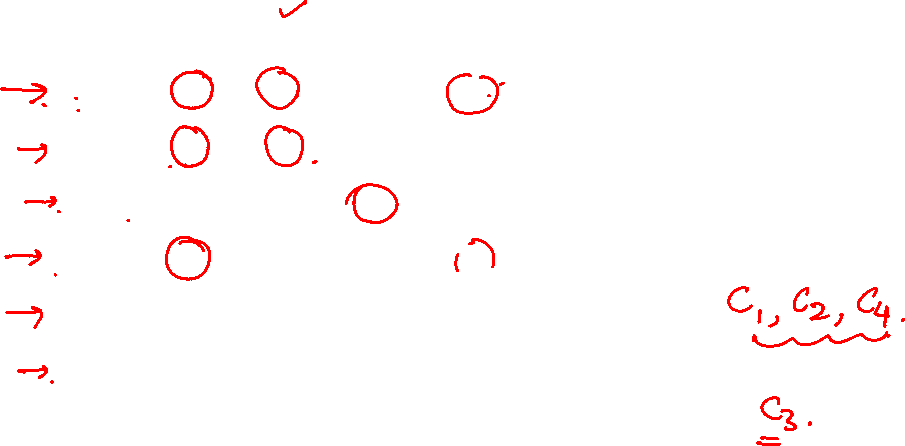 C1, C2, C4.
C3.